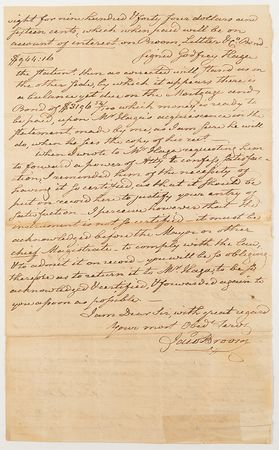 eight for nine hundred & forty four dollars and
sixteen cents, which when paid will be on
account of interest on Broom, Bond
$944:16 Signed Godfrey Haga
the Statemt. then as directed will turn us in
the other side, by which it appears there is
a balance yet due on the Mortgage and
Bond of $ which money is ready to
be paid, upon Mr. Haga's acquiescence in the
Statement made by me, as I am sure he will
do, when he sees the copy of his rect.
When I wrote to Mr. Haga requesting him
to forward a power of Atty. to confess satisfaction,
I reminded him of the necessity of
having it so certified, as that it should be
put on record here to justify your entry of
Satisfaction. I perceive however that the
instrument is not so certified. it must be
acknowledged before the Mayor or other
chief Magistrate to comply with the Law,
& to admit it on record. you will be so obliging
therefore as to return it to Mr. Haga, to be so
acknowledged & certified, & forwarded again to
you as soon as possible —
I am Dear Sir, with great regard
Your most Obedt. Servt.
Jacob Broom